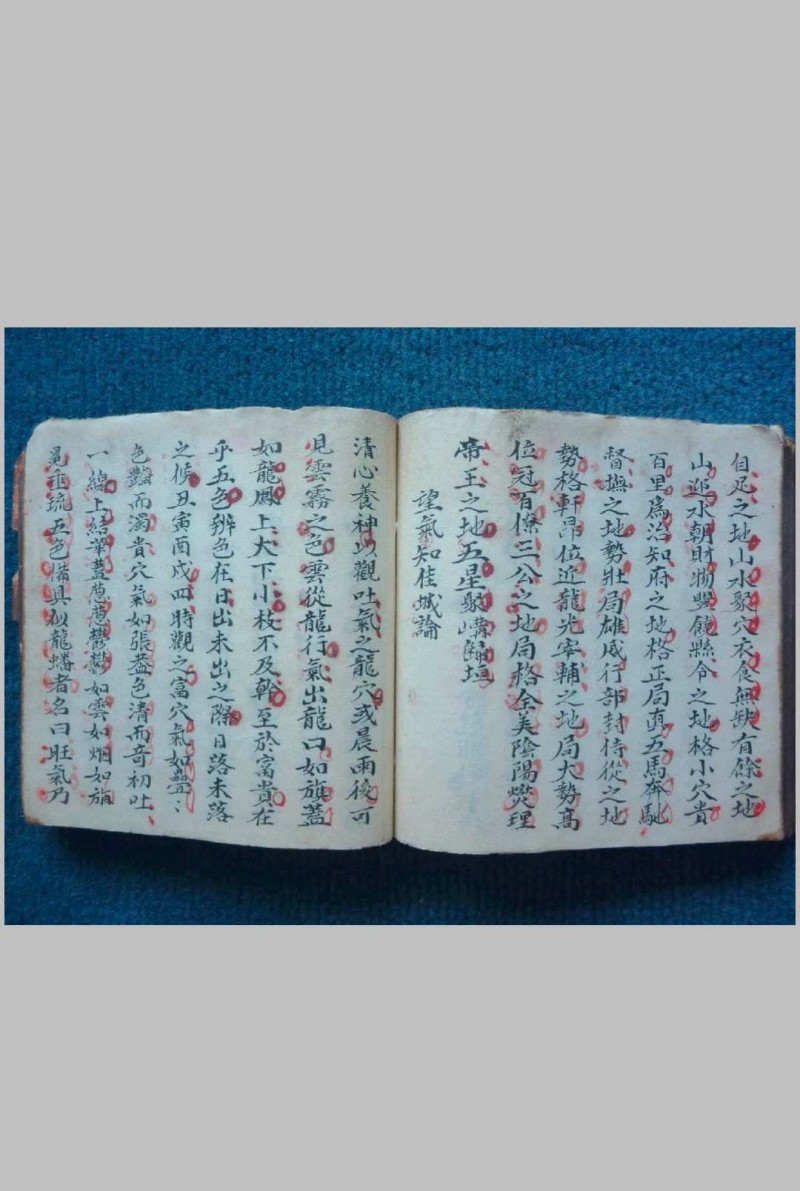 自足之地山水聚穴衣食無缺有餘之地
山迎水朝財物豐饒縣令之地格小穴貴
百里為治知府之地格正局真五馬奔馳
督撫之地勢壯局雄威行部封侍從之地
勢格軒昂位近龍光宰輔之地局大勢高
位冠百僚三公之地局格全美陰陽爕理
帝王之地五星聚講歸垣
望氣知佳城論
清心養神以觀吐氣之龍穴或晨雨後可
見雲霧之色雲從龍行氣出龍口如旗蓋
如龍鳳上大下小枝不及幹至於富貴在
乎五色辨色在日出未出之際日落未落
之候丑寅酉戌四時觀之富穴氣如
色豔而濁貴穴氣如張蓋色清而奇初吐
一線上結華蓋蔥蔥鬱鬱如雲如烟如旗
冕垂琉五色備具似龍蟠者名曰旺氣乃